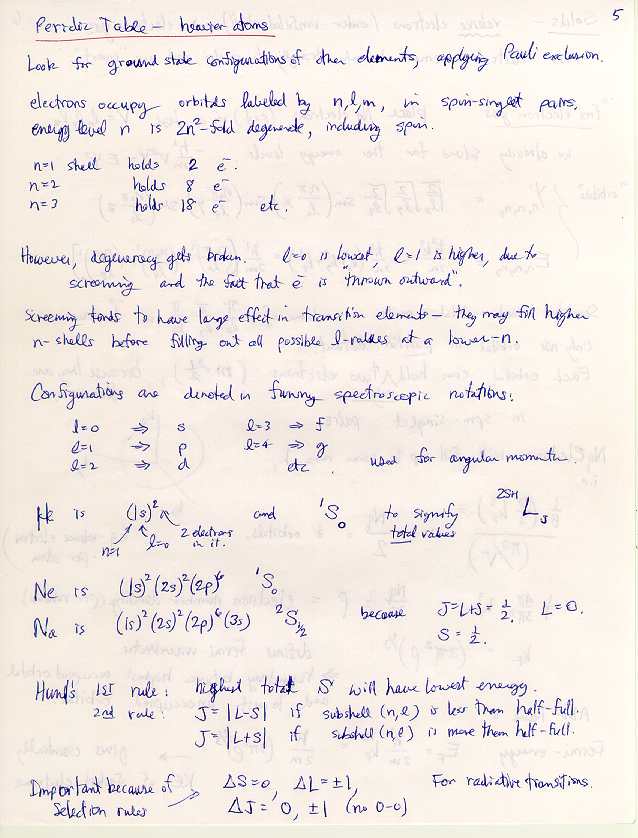 5
Periodic Table — heavier atoms
Look for ground state configurations of other elements, applying Pauli exclusion.
electrons occupy orbitals labeled by n,l,m, in spin-singlet pairs.
energy level n is 2n²-fold degenerate, including spin.
n=1 shell holds 2 e⁻.
n=2 holds 8 e⁻
n=3 holds 18 e⁻ etc.
However, degeneracy gets broken. l=0 is lowest, l=1 is higher, due to
screening and the fact that e⁻ is "thrown outward".
Screening tends to have large effect in transition elements — they may fill higher
n-shells before filling out all possible l-values at a lower-n.
Configurations are denoted in funny spectroscopic notations.
l=0 ⇒ s l=3 ⇒ f
l=1 ⇒ p l=4 ⇒ g
l=2 ⇒ d etc. used for angular momentum.
He is (1s)² and ¹S₀ to signify ²ˢ⁺¹L_J
n=1 l=0 2 electrons in it. total values
Ne is (1s)²(2s)²(2p)⁶ ¹S₀
Na is (1s)²(2s)²(2p)⁶(3s) ²S₁/₂ because J=L+S=½. L=0.
S=½.
Hund's 1st rule: highest total S will have lowest energy.
2nd rule: J=|L-S| if subshell (n,l) is less than half-full.
J=|L+S| if subshell (n,l) is more than half-full.
Important because of ΔS=0, ΔL=±1, For radiative transitions.
selection rules ΔJ=0, ±1 (no 0-0)